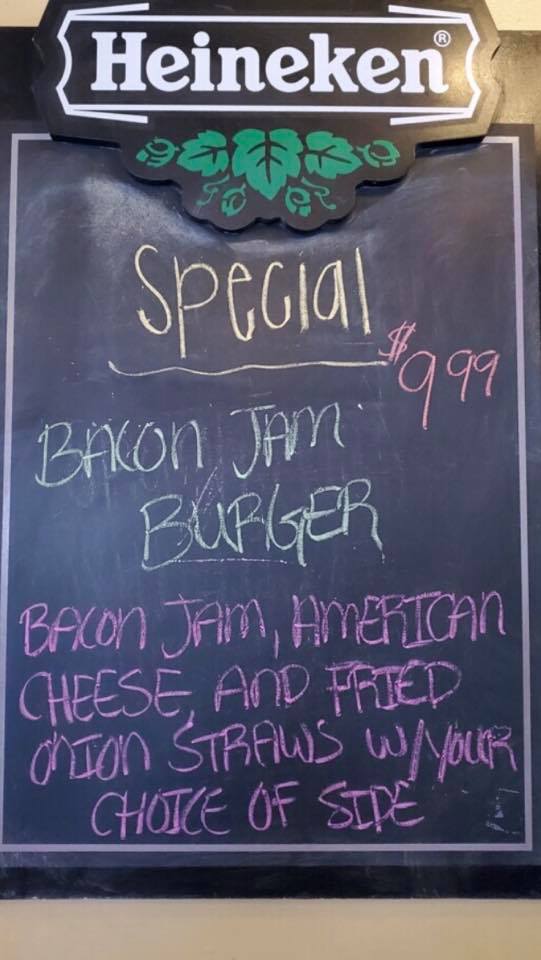 Heineken®
Special
$9.99
BACON JAM
BURGER
BACON JAM, AMERICAN
CHEESE, AND FRIED
ONION STRAWS W/YOUR
CHOICE OF SIDE